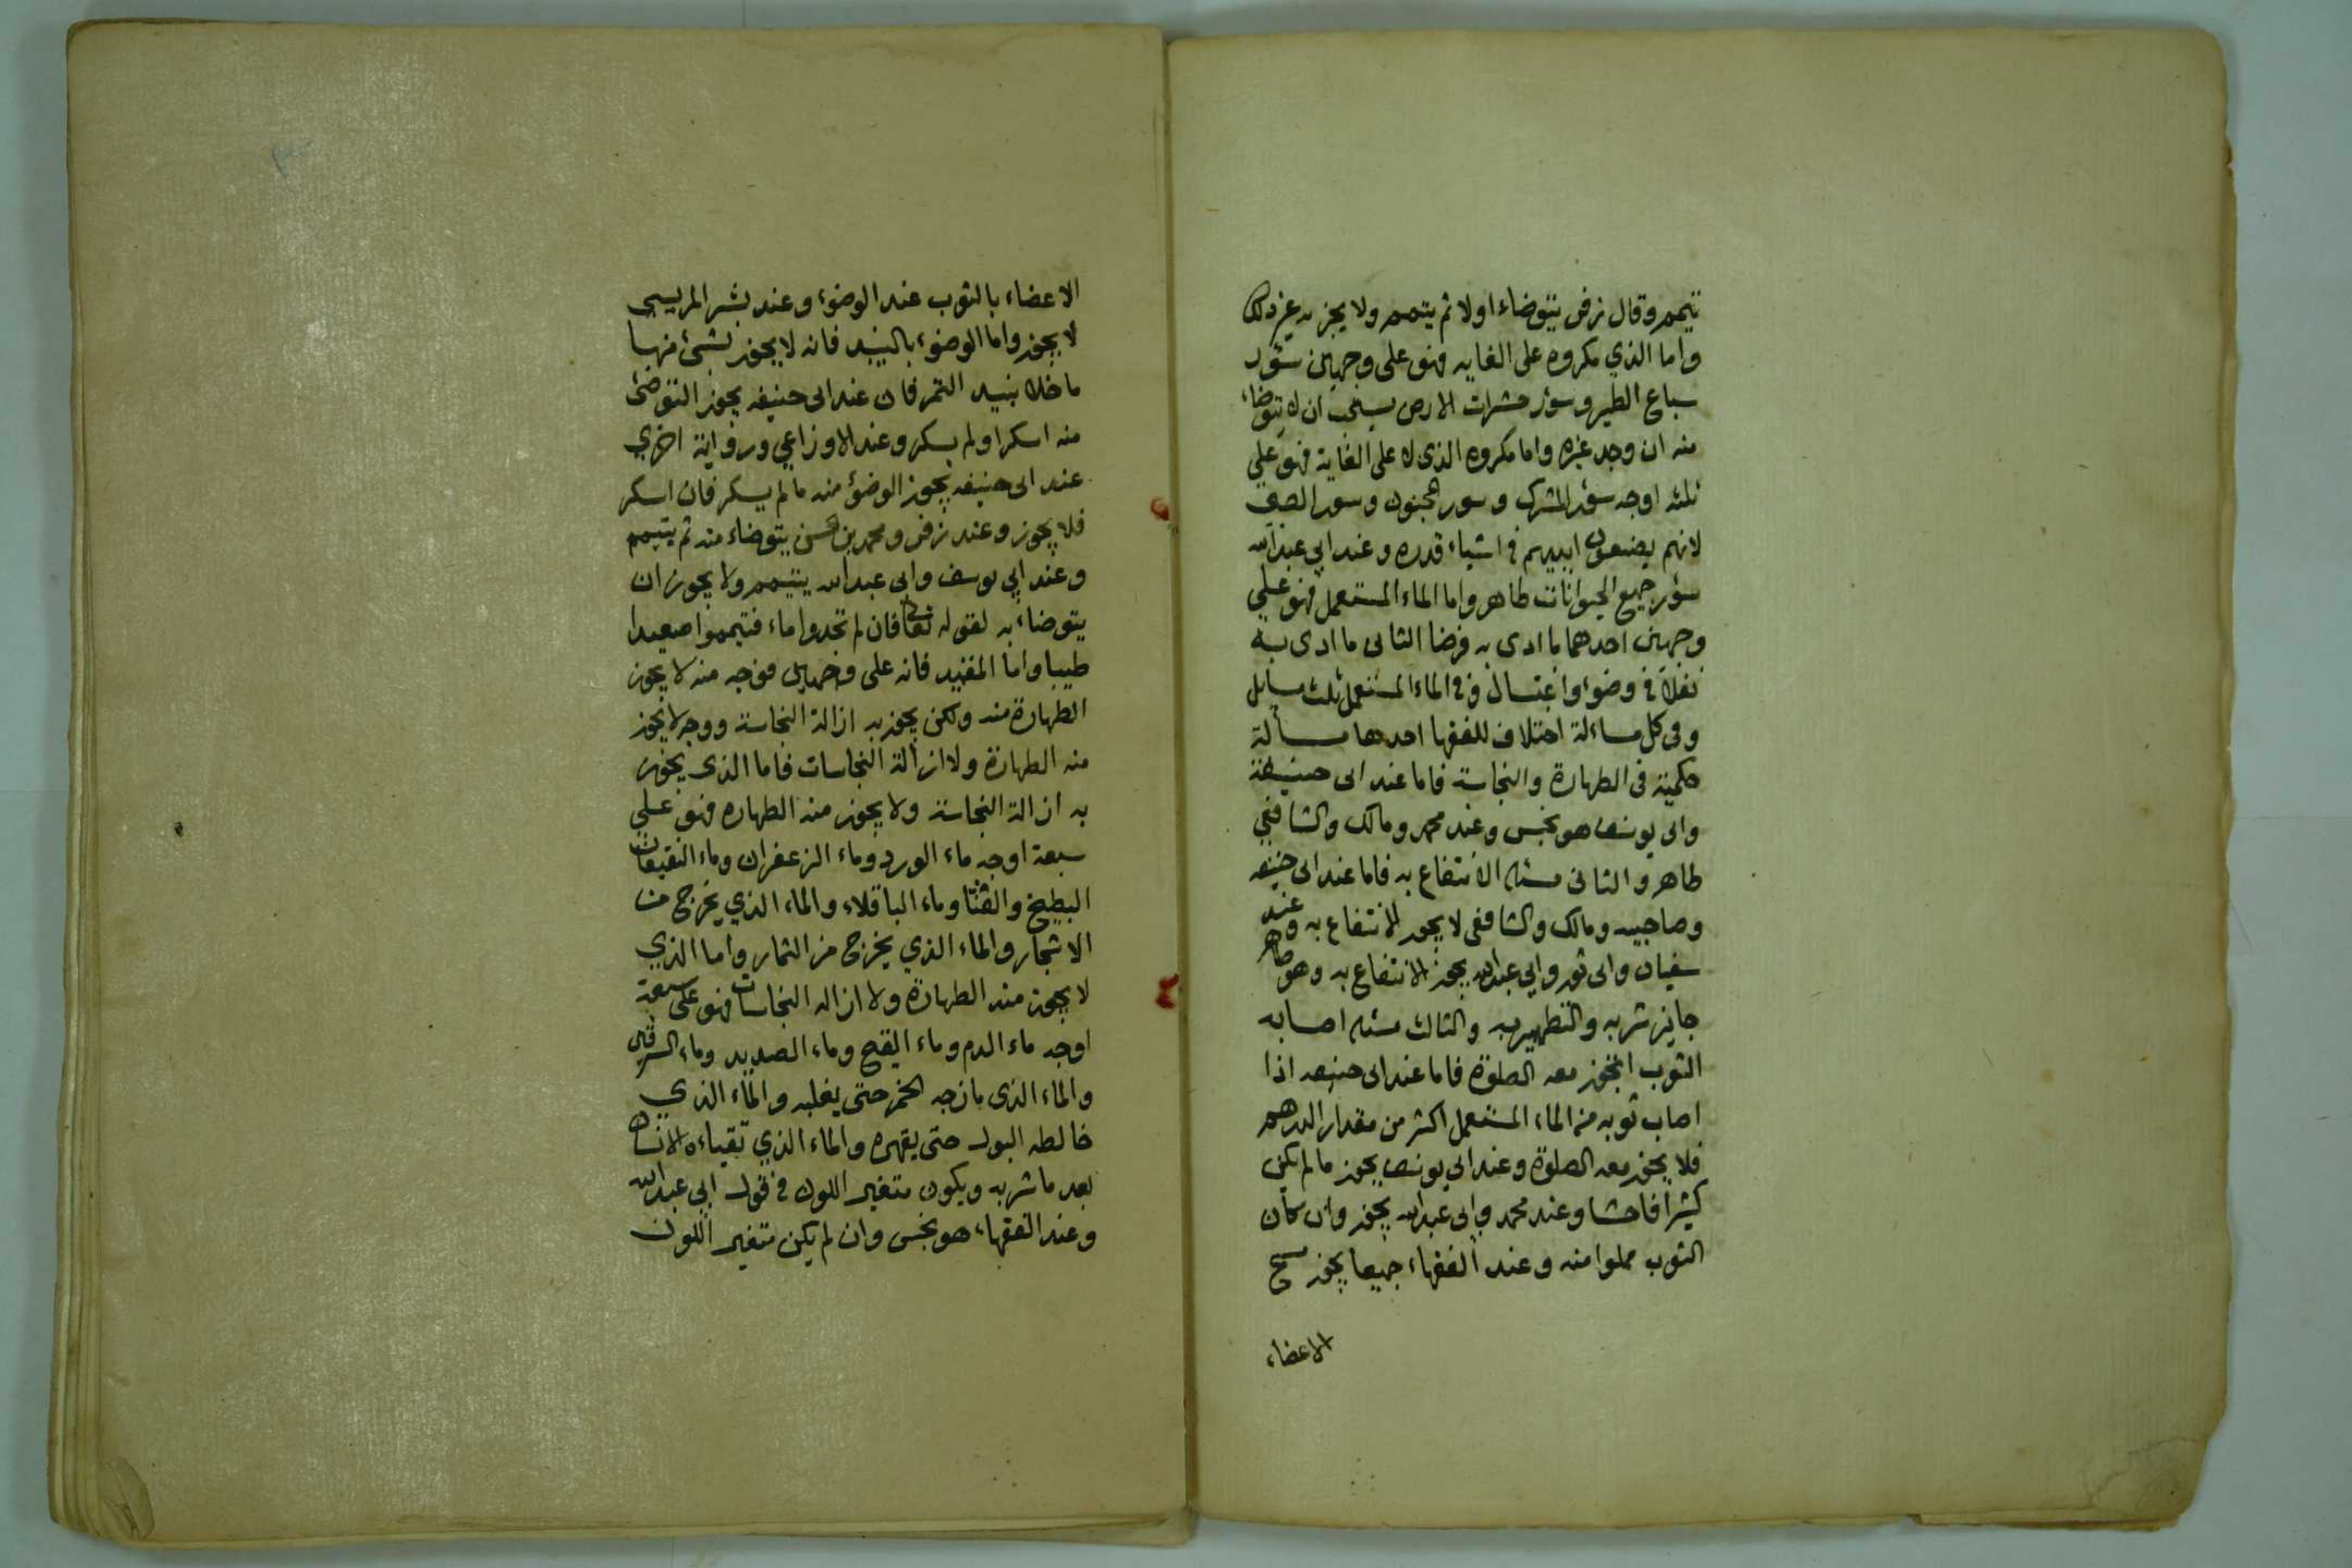 تيمم وقال زفر يتوضاء اولا ثم يتمم ولا يجزيه غير ذلك
واما الذي مكروه على الغايه فهو على وجهين سؤر
سباع الطير وسؤر حشرات الارض يستحب ان لا يتوضاء
منه ان وجد غيره واما مكروه الذى لا على الغاية فهو على
ثلثه اوجه سؤر المشرك وسور المجنون وسور الصبي
لانهم يضعون ايديهم في اشياء قدره وعند ابي عبد الله
سؤر جميع الحيوانات طاهر واما الماء المستعمل فهو على
وجهين احدهما ما ادى به فرضا الثانى ما ادى به
نفلا في وضوء واغتسال وفي الماء المستعمل ثلث مسايل
وفى كل مساءلة اختلاف للفقها احدها مسألة
حكمية فى الطهارة والنجاسة فاما عند ابى حنيفة
وابى يوسف هو نجس وعند محمد ومالك والشافعي
طاهر والثانى مسئله الانتفاع به فاما عند ابى حنيفه
وصاحبيه ومالك والشافعى لا يجوز الانتفاع به وعند
سفيان وابى ثور وابي عبد الله يجوز الانتفاع به وهو طاهر
جايز شربه والتطهير به والثالث مسئله اصابه
الثوب اتجوز معه الصلوة فاما عند ابى حنيفه اذا
اصاب ثوبه من الماء المستعمل اكثر من مقدار الدرهم
فلا يجوز معه الصلوة وعند ابى يوسف يجوز ما لم يكن
كثيرا فاحشا وعند محمد وابى عبد الله يجوز وان كان
الثوب مملوا منه وعند الفقهاء جميعا يجوز مسح
الاعضاء
الاعضاء بالثوب عند الوضوء وعند بشر المريسى
لا يجوز واما الوضوء بالنبيذ فانه لا يجوز بشئ منها
ما خلا بنيد التمر فان عند ابى حنيفه يجوز التوضئ
منه اسكر او لم يسكر وعند الاوزاعي ورواية اخري
عند ابى حنيفه يجوز الوضؤ منه ما لم يسكر فان اسكر
فلا يجوز وعند زفر ومحمد بن الحسن يتوضاء منه ثم يتيمم
وعند ابي يوسف وابى عبد الله يتيمم ولا يجوز ان
يتوضاء به لقوله تعالى فان لم تجدوا ماء فتيمموا صعيدا
طيبا واما المقيد فانه على وجهين فوجه منه لا يجوز
الطهارة منه ولكن يجوز به ازالة النجاسة ووجه لا يجوز
منه الطهارة ولا ازالة النجاسات فاما الذى يجوز
به ازالة النجاسة ولا يجوز منه الطهاره فهو على
سبعة اوجه ماء الورد وماء الزعفران وماء النقيعات
البطيخ والقثا وماء الباقلاء والماء الذي يخرج من
الاشجار والماء الذي يخرج من الثمار واما الذي
لا يجوز منه الطهارة ولا ازاله النجاسات فهو على سبعة
اوجه ماء الدم وماء القيح وماء الصديد وماء السرقين
والماء الذى مازجه الخمر حتى يغلبه والماء الذي
خالطه البول حتى يقهره والماء الذي تقياءه الانسان
بعد ما شربه ويكون متغير اللون في قول ابي عبد الله
وعند الفقهاء هو نجس وان لم يكن متغير اللون